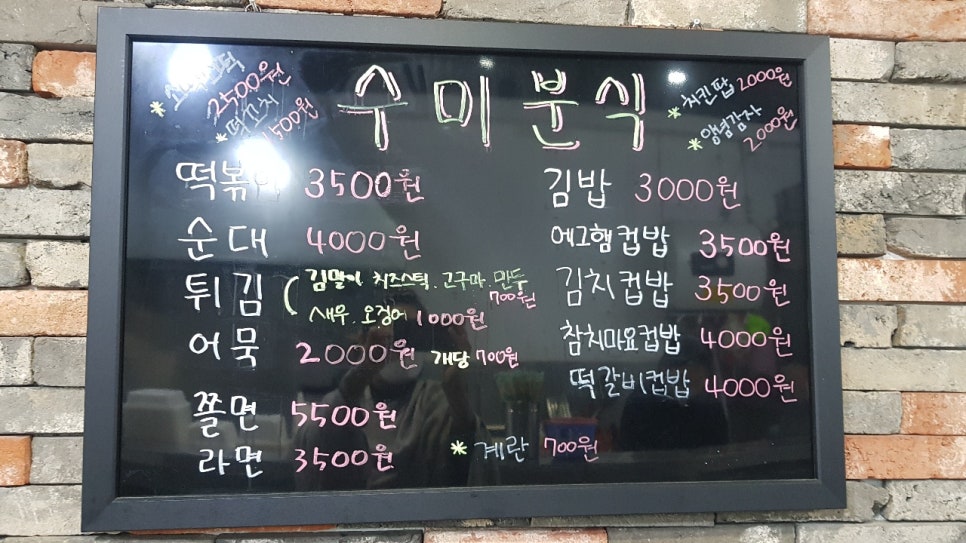 수미분식
2500원
* 떡꼬치
500원
* 치킨팝 2000원
* 양념감자
2000원
떡볶이 3500원
순대 4000원
튀김 ( 김말이 치즈스틱 . 고구마 . 만두
700원
새우 . 오징어 1000원
어묵 2000원 개당 700원
쫄면 5500원
라면 3500원
* 계란 700원
김밥 3000원
에그햄컵밥 3500원
김치컵밥 3500원
참치마요컵밥 4000원
떡갈비컵밥 4000원